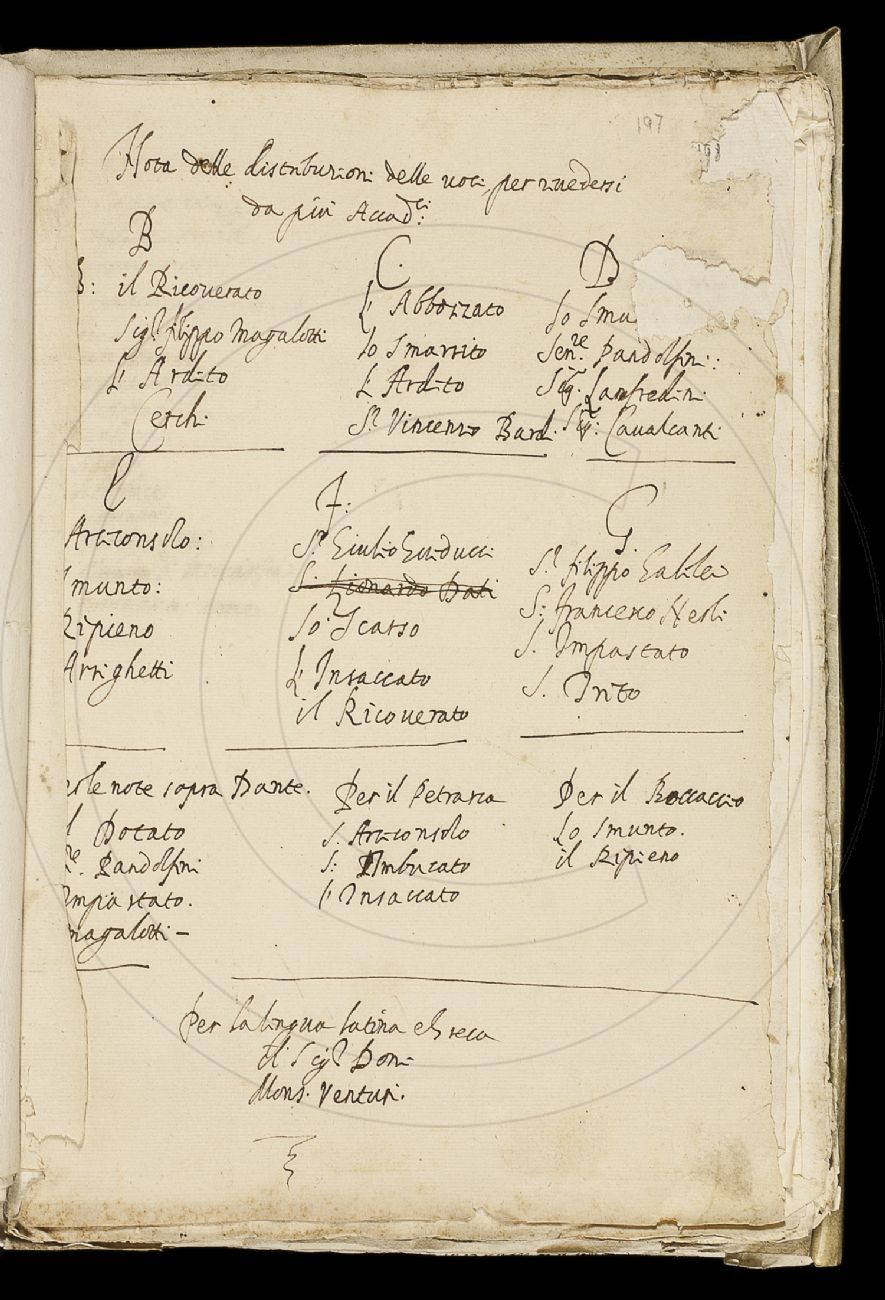 197
198
Nota delle distribuzioni delle voci per rivedersi
da più Accad.ci:
B
3: il Ricouerato
Sig.r filippo Magalotti
L' Ardito
Cerchi
C.
L' Abbozzato
Lo Smarrito
L' Ardito
S.r Vincenzo Bardi.
D
Lo Smu
Sen.re Pandolfini:
Sig.r Lanfredini
Sig.r: Caualcanti
E
Arciconsolo:
Smunto:
Ripieno
Arrighetti
F:
S.r Giulio Guiducci
S. Lionardo Dati
Lo Scarso
L' Insaccato
il Ricouerato
G
S.r filippo Galilei
S: francesco Nerli
S. Impastato
S. Trito
le note sopra Dante.
l Dotato
re. Pandolfini
Impastato.
magalotti –
Per il Petrarca
S. Arciconsolo
S: Imbucato
L' Insaccato
Per il Boccaccio
Lo Smunto.
il Ripieno
Per la lingua latina e Greca
il Sig.r Doni
Mons. Venturi.